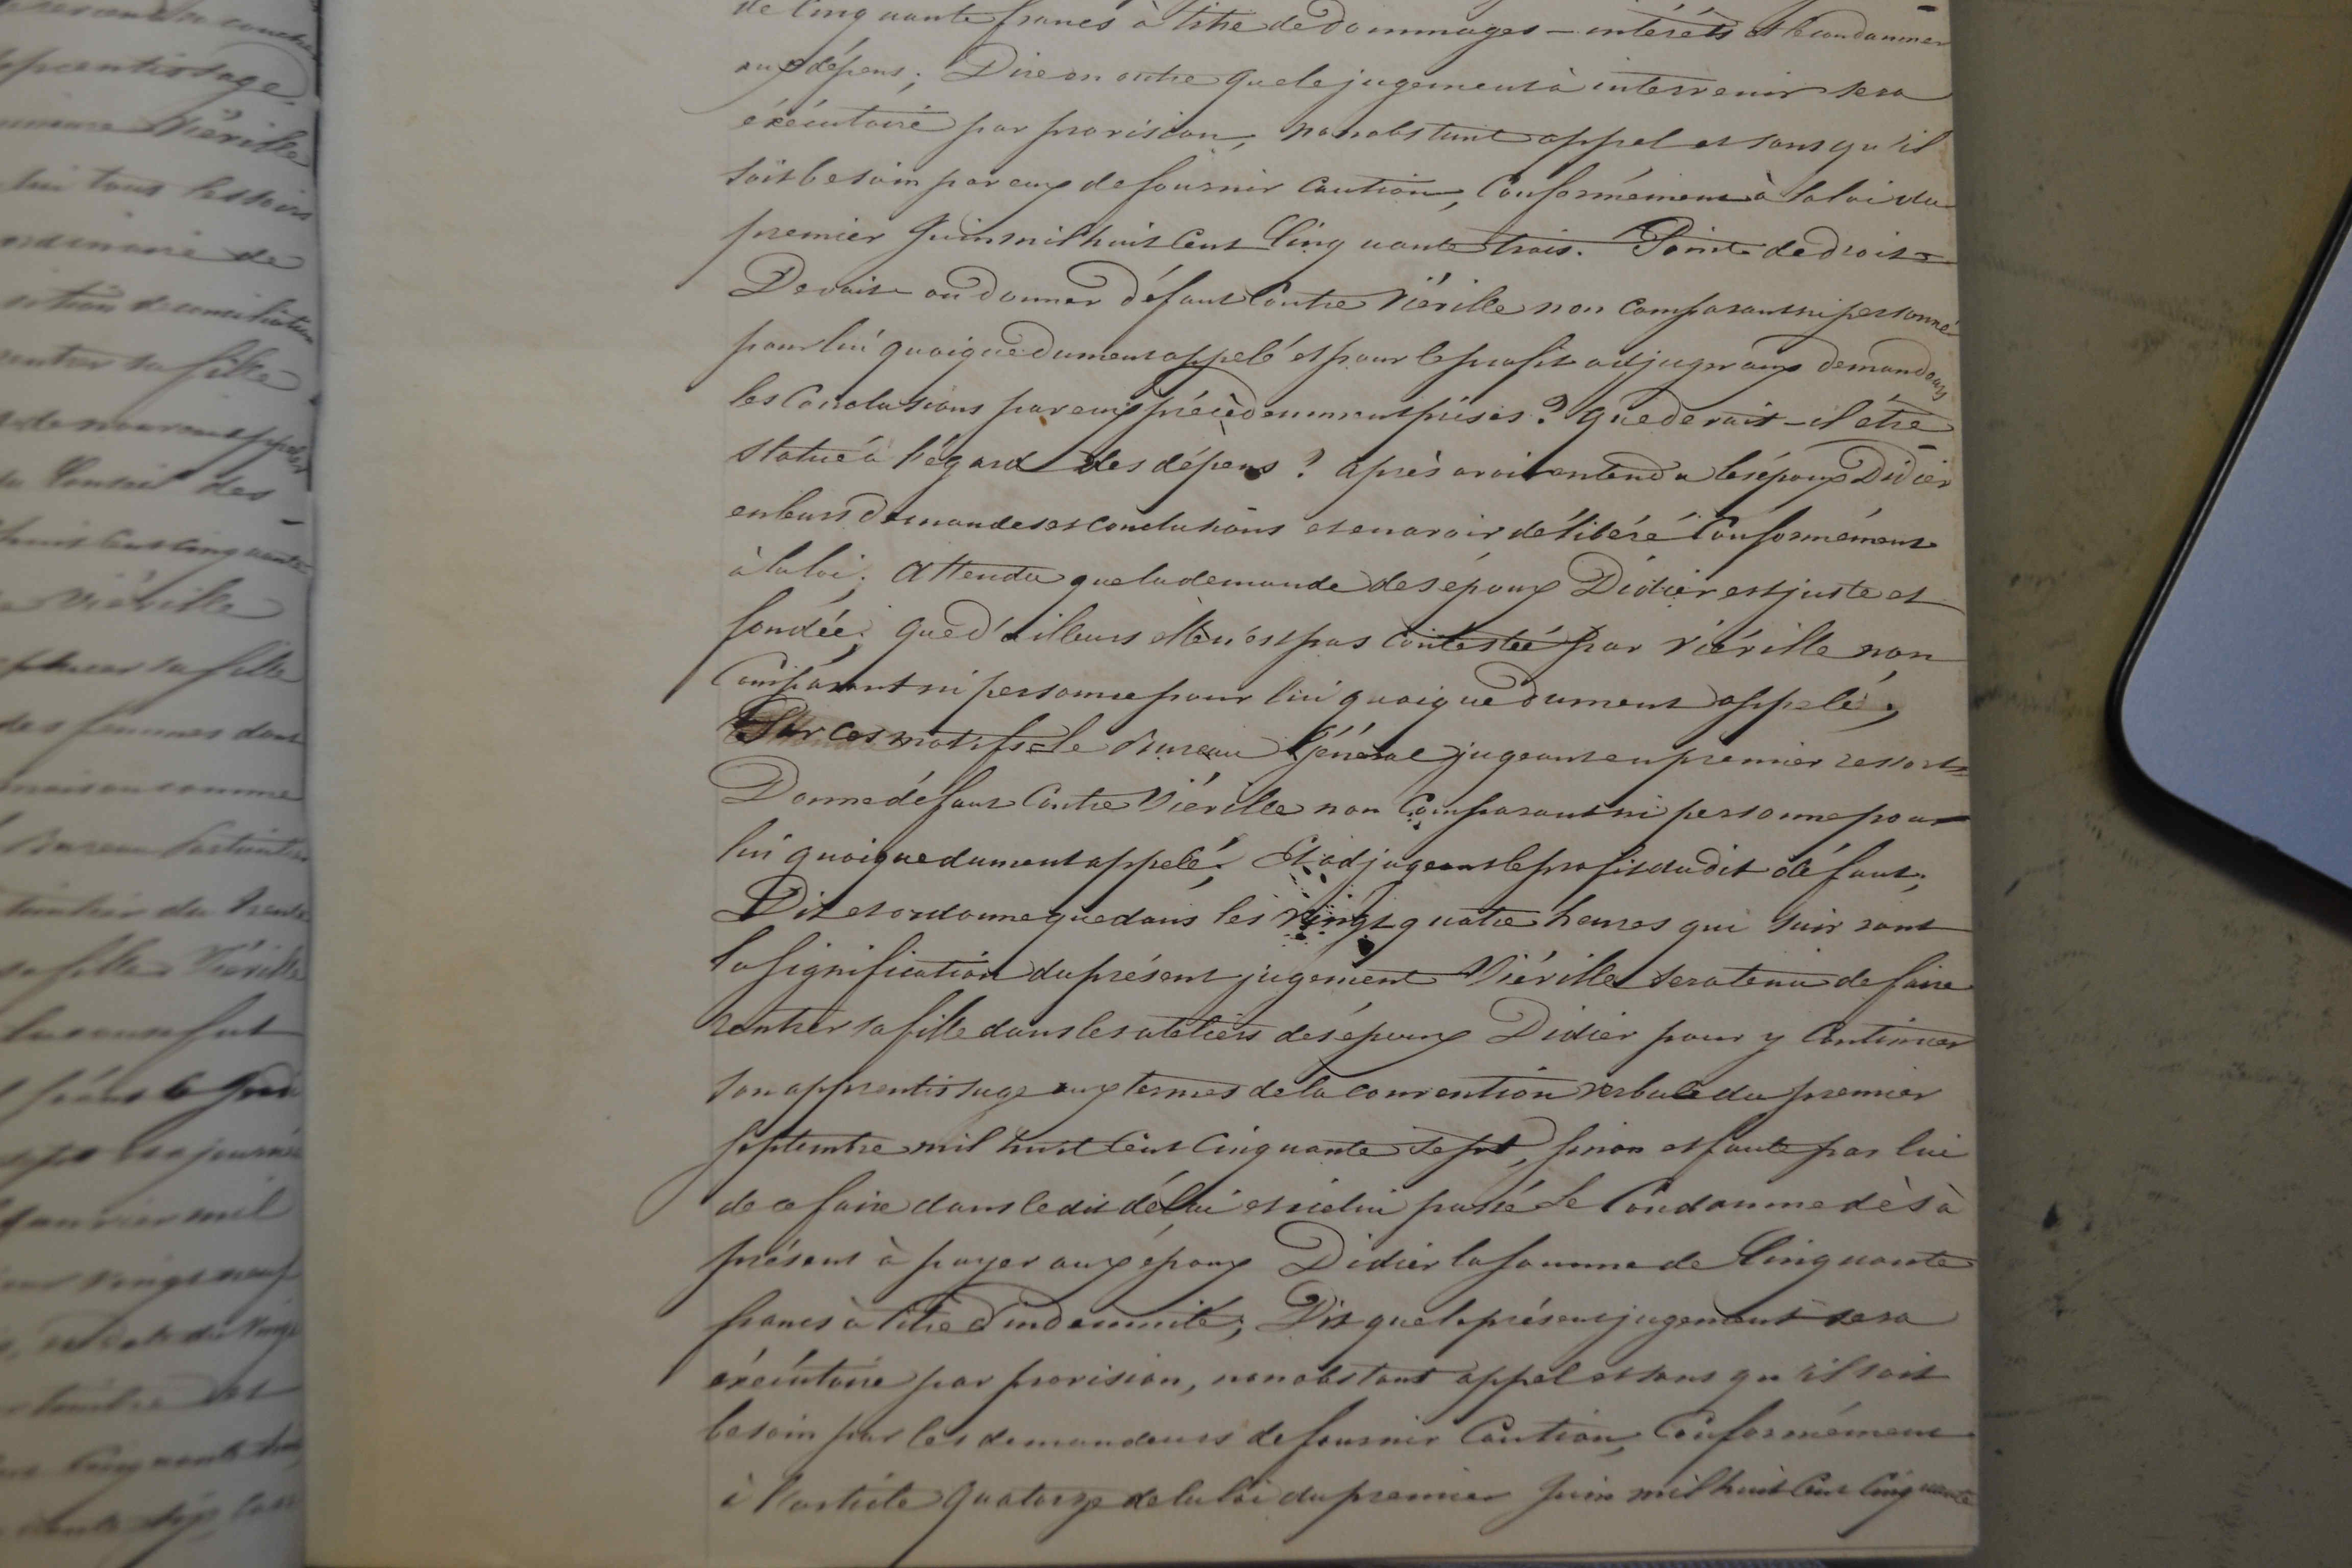 de Cinquante francs à titre de dommages-intérêts et le condamner
aux dépens; Dire en outre que le jugement à intervenir sera
exécutoire par provision, nonobstant appel et sans qu'il
soit besoin par eux de fournir Caution, Conformément à la loi du
premier Juin mil huit Cent Cinquante trois. Point de droit =
Devait-on donner défaut Contre Viéville non Comparant ni personne
pour lui quoique dument appelé et pour le profit adjuger aux demandeurs
les Conclusions par eux précédemment prises? que devait-il être
statué à l'égard des dépens? après avoir entendu les époux Didier
en leurs demandes et conclusions et en avoir délibéré Conformément
à la loi; Attendu que la demande des époux Didier est juste et
fondée; que d'ailleurs elle n'est pas Contestée par Viéville non
Comparant ni personne pour lui quoique dument appelé;
Par ces motifs = le Bureau Général jugeant en premier ressort =
Donne défaut Contre Viéville non Comparant ni personne pour
lui quoique dument appelé; Et adjugeant le profit dudit défaut;
Dit et ordonne que dans les vingt quatre heures qui suivront
la signification du présent jugement Viéville sera tenu de faire
rentrer sa fille dans les ateliers des époux Didier pour y Continuer
son apprentissage aux termes de la convention verbale du premier
septembre mil huit Cent Cinquante sept, sinon et faute par lui
de ce faire dans ledit délai et icelui passé Le Condamne dès à
présent à payer aux époux Didier la somme de Cinquante
francs à titre d'indemnité; Dit que le présent jugement sera
exécutoire par provision, nonobstant appel et sans qu'il soit
besoin par les demandeurs de fournir Caution, Conformément
à l'article quatorze de la loi du premier Juin mil huit Cent Cinquante